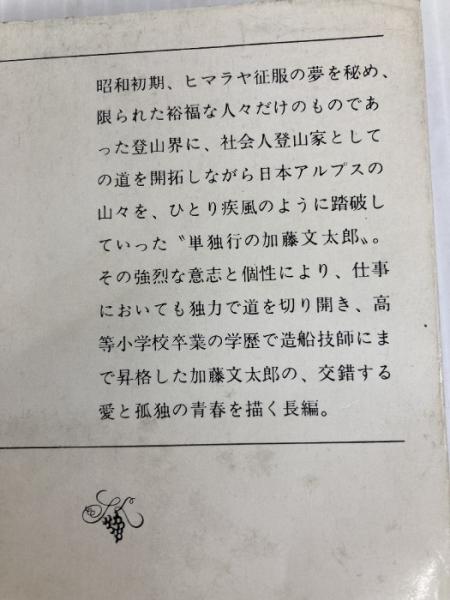 昭和初期、ヒマラヤ征服の夢を秘め、
限られた裕福な人々だけのものであ
った登山界に、社会人登山家として
の道を開拓しながら日本アルプスの
山々を、ひとり疾風のように踏破し
ていった〝単独行の加藤文太郎〟。
その強烈な意志と個性により、仕事
においても独力で道を切り開き、高
等小学校卒業の学歴で造船技師にま
で昇格した加藤文太郎の、交錯する
愛と孤独の青春を描く長編。